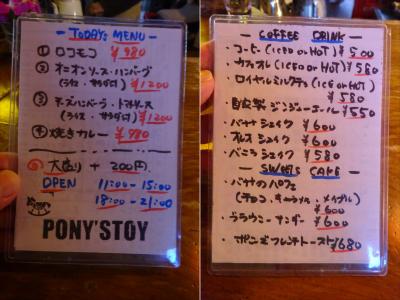 - TODAY'S MENU -
① ロコモコ ¥980
② オニオンソース・ハンバーグ
(ライス・サラダ付) ¥1200
③ チーズハンバーグ・トマトソース
(ライス・サラダ付) ¥1200
④ 焼きカレー ¥980
◎ 大盛り + 200円
OPEN 11:00-15:00
18:00-21:00
PONY'S TOY
- COFFEE DRINK -
・コーヒー (ICED or HOT) ¥500
・カフェオレ (ICE or HOT) ¥580
・ロイヤルミルクティ (ICE or HOT)
¥580
・自家製 ジンジャーエール ¥550
・バナナシェイク ¥600
・オレオシェイク ¥600
・バニラシェイク ¥580
- SWEETS CAKE -
・バナナのパフェ
(チョコ・キャラメル・メイプル)
¥600
・ブラウニーサンデー ¥600
・ポニーズフレンチトースト ¥680